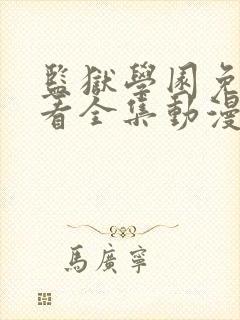 監獄學園免
看全集動漫
馬廣寧